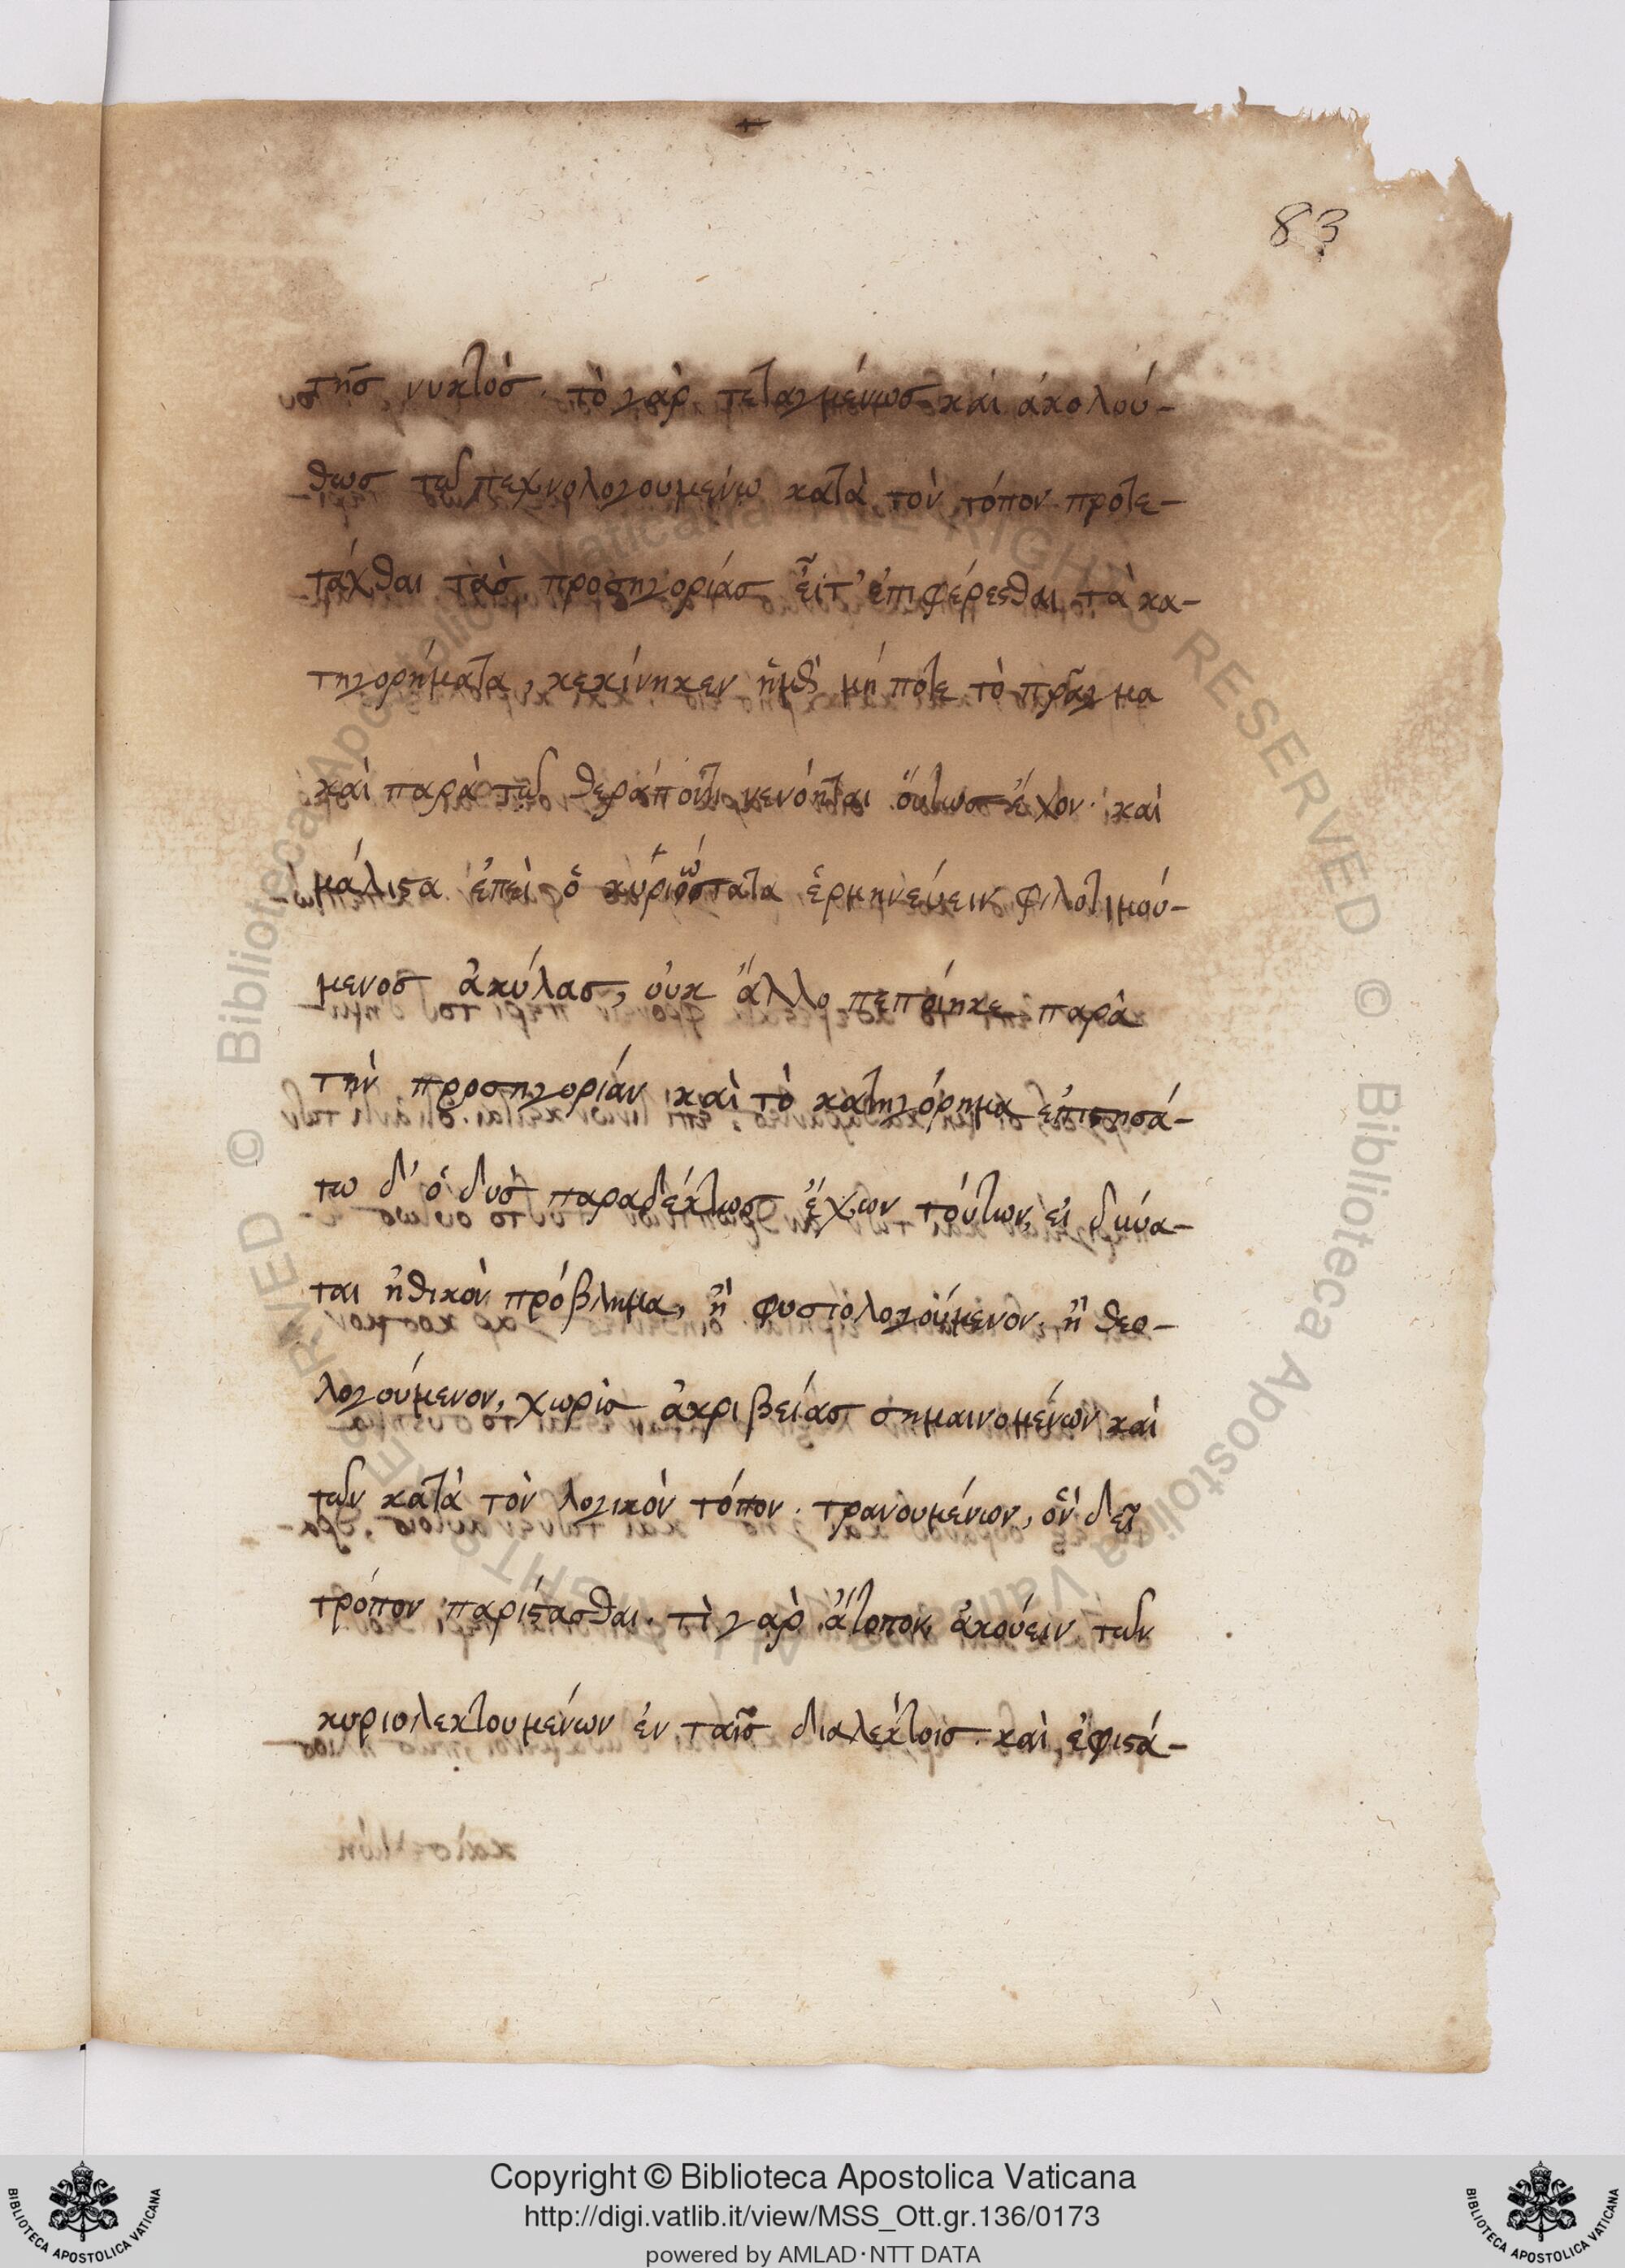 83
τῆσ νυκτὸσ. τὸ γὰρ τεταγμένωσ καὶ ἀκολού-
θωσ τῶ τεχνολογουμένω κατὰ τὸν τόπον προτε-
τάχθαι τὰσ προσηγορίασ εἶτ' ἐπιφέρεσθαι τὰ κα-
τηγορήματα, κεκίνηκεν ἡμᾶσ μήποτε τὸ πρᾶγμα
καὶ παρὰ τῶ θεράποντι νενόηται οὕτωσ ἔχον. καὶ
μάλιστα ἐπεὶ ὁ κυριώτατα ἑρμηνεύειν φιλοτιμού-
μενοσ ἀκύλασ, οὐκ ἄλλο πεποίηκε παρὰ
τὴν προσηγορίαν καὶ τὸ κατηγόρημα ἐπιστησά-
τω δ' ὁ δυσ παραδέκτωσ ἔχων τούτων, εἰ δύνα-
ται ἠθικὸν πρόβλημα, ἢ φυσιολογούμενον. ἢ θεο-
λογούμενον, χωρὶσ ἀκριβείασ σημαινομένων καὶ
τῶν κατὰ τὸν λογικὸν τόπον. τρανουμένων, ὃν δεῖ
τρόπον παρίστασθαι. τὶ γὰρ ἄτοπον ἀκούειν τῶν
κυριολεκτουμένων ἐν ταῖσ διαλέκτοισ. καὶ ἐφιστά-
Copyright © Biblioteca Apostolica Vaticana
http://digi.vatlib.it/view/MSS_Ott.gr.136/0173
powered by AMLAD·NTT DATA
BIBLIOTECA APOSTOLICA VATICANA
BIBLIOTECA APOSTOLICA VATICANA